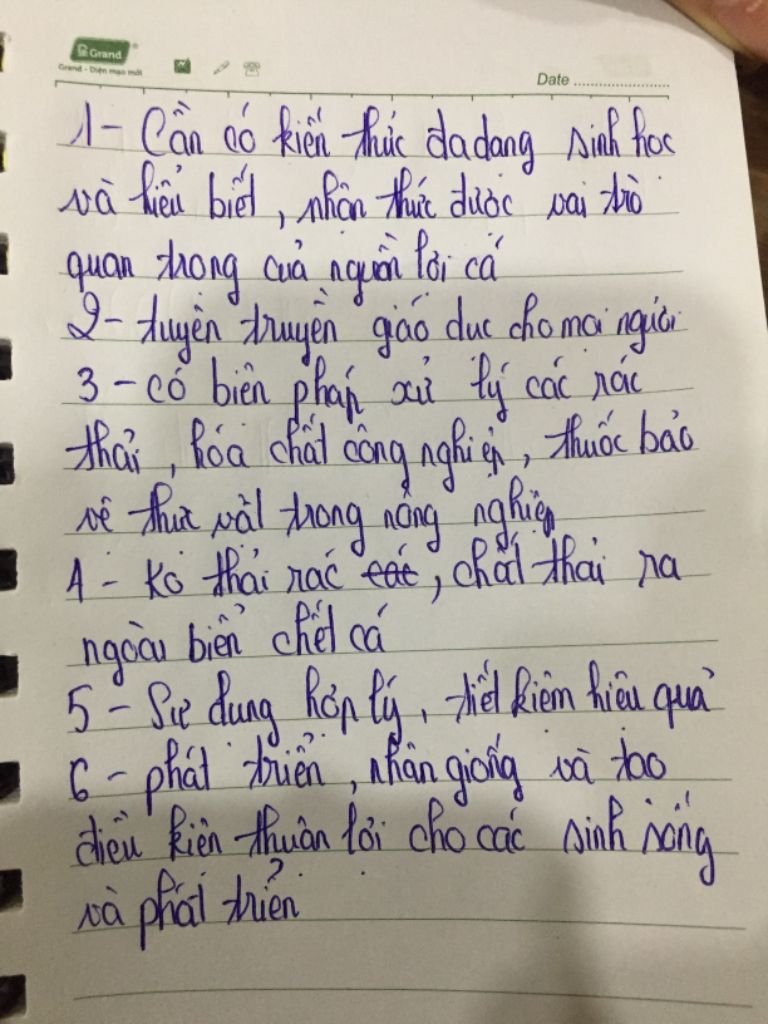 Grand
Grand - Diện mạo mới
Date
1 - Cần có kiến thức da dang sinh hoc
và hiểu biết, nhân thức dước vai trò
quan trong cuả nguồn lơi cá
2 - tuyên truyền giáo duc cho moi người
3 - có biên pháp xử lý các rác
thải, hóa chất công nghiệp, thuốc bảo
vê thưc vât trong nông nghiêp
4 - Ko thải rác các, chất thải ra
ngoài biển chết cá
5 - Sư dung hơp lý, tiết kiêm hiêu quả
6 - phát triển, nhân giống và tao
diều kiên thuân lơi cho các sinh sống
và phát triển